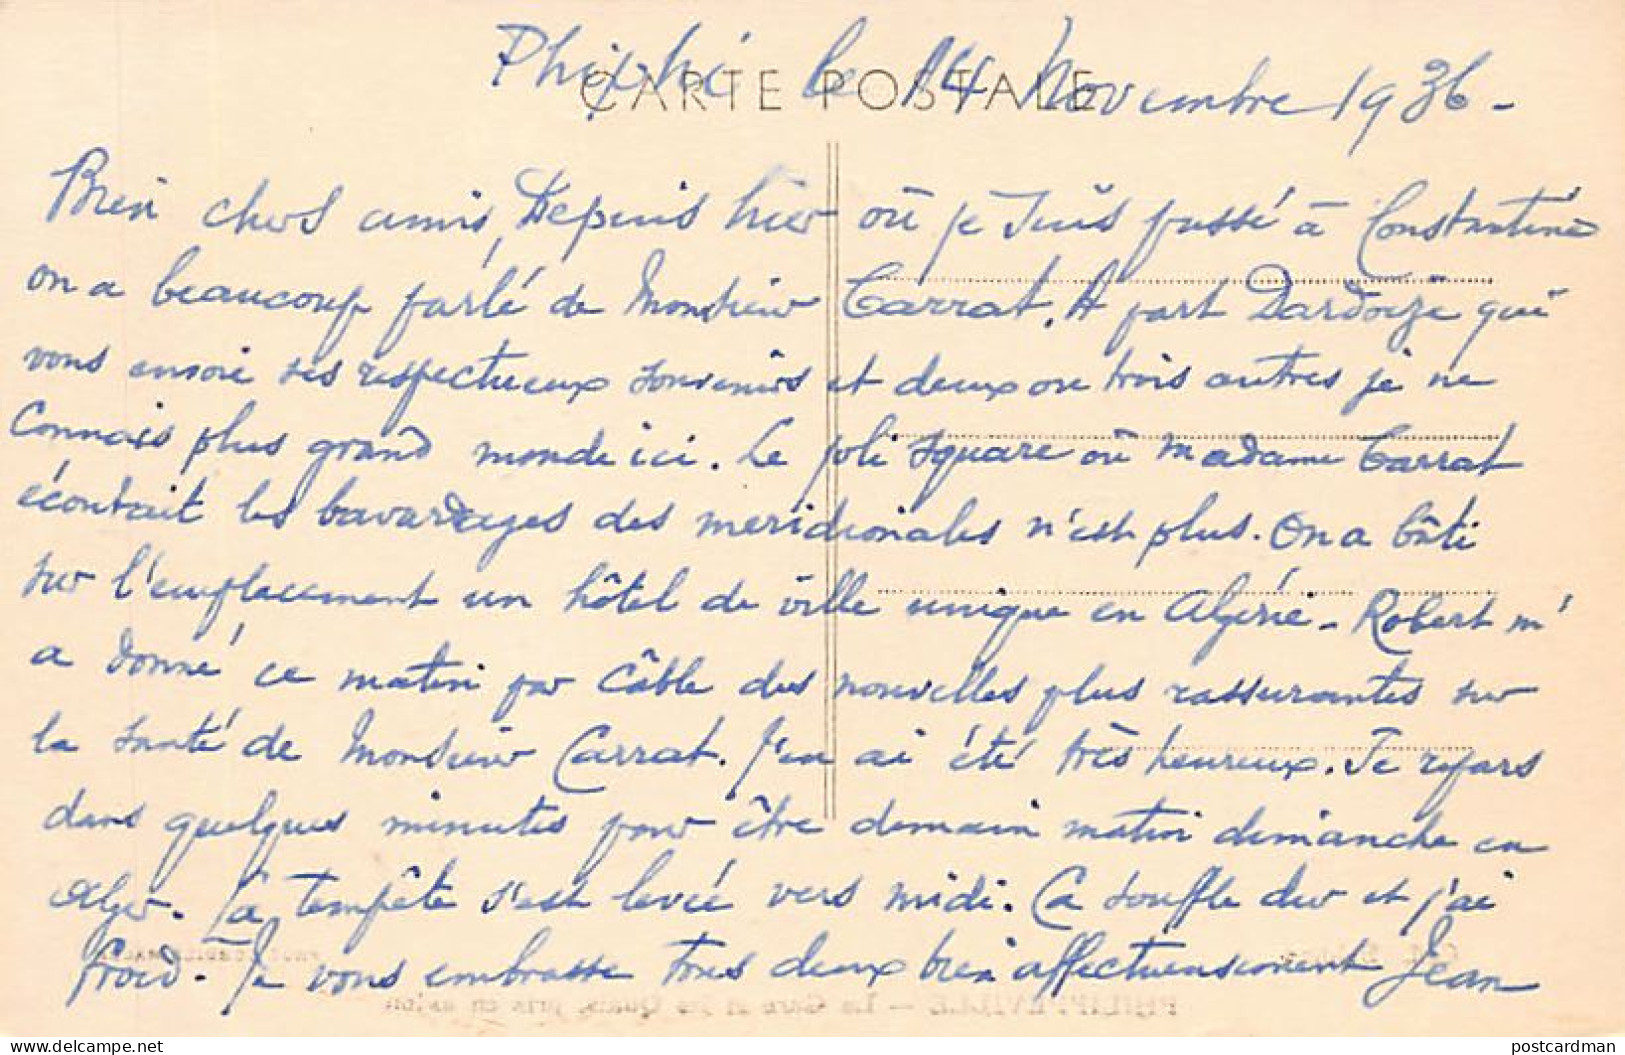 le 14 Novembre 1936 -
CARTE POSTALE
Bien chers amis, Depuis hier où je suis passé à Constantine
on a beaucoup parlé de Monsieur Carrat. A part qui
vous envoie ses respectueux souvenirs et deux ou trois autres je ne
Connais plus grand monde ici. Le joli square où Madame Carrat
écoutait les bavardages des meridionales n'est plus. On a bâti
sur l'emplacement un hôtel de ville unique en Algérie - Robert m'
a donné ce matin par câble des nouvelles plus rassurantes sur
la santé de Monsieur Carrat. J'en ai été très heureux. Je repars
dans quelques minutes pour être demain matin dimanche en
Alger. La tempête s'est levée vers midi. Ca souffle dur et j'ai
froid. Je vous embrasse tous deux bien affectueusement Jean
PHILIPPEVILLE - La Gare et les Quais, pris en avion
postcardman
www.delcampe.net